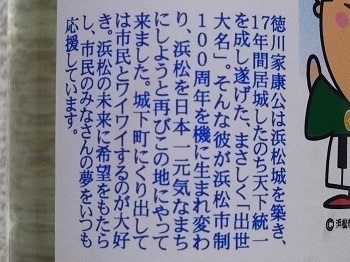 徳川家康公は浜松城を築き、
17年間居城したのち天下統一
を成し遂げた、まさしく「出世
大名」。そんな彼が浜松市制
100周年を機に生まれ変わ
り、浜松を日本一元気なまち
にしようと再びこの地にやって
来ました。城下町にくり出して
は市民とワイワイするのが大好
き。浜松の未来に希望をもたら
し、市民のみなさんの夢をいつも
応援しています。
©浜松市